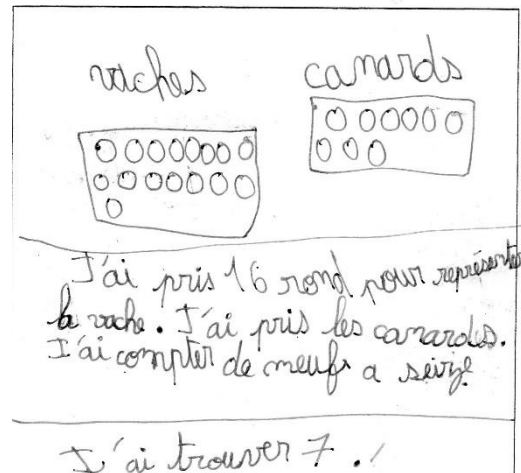 vaches canards
J'ai pris 16 rond pour représenter
la vache. J'ai pris les canards.
J'ai compter de neufs a seize
J'ai trouver 7.